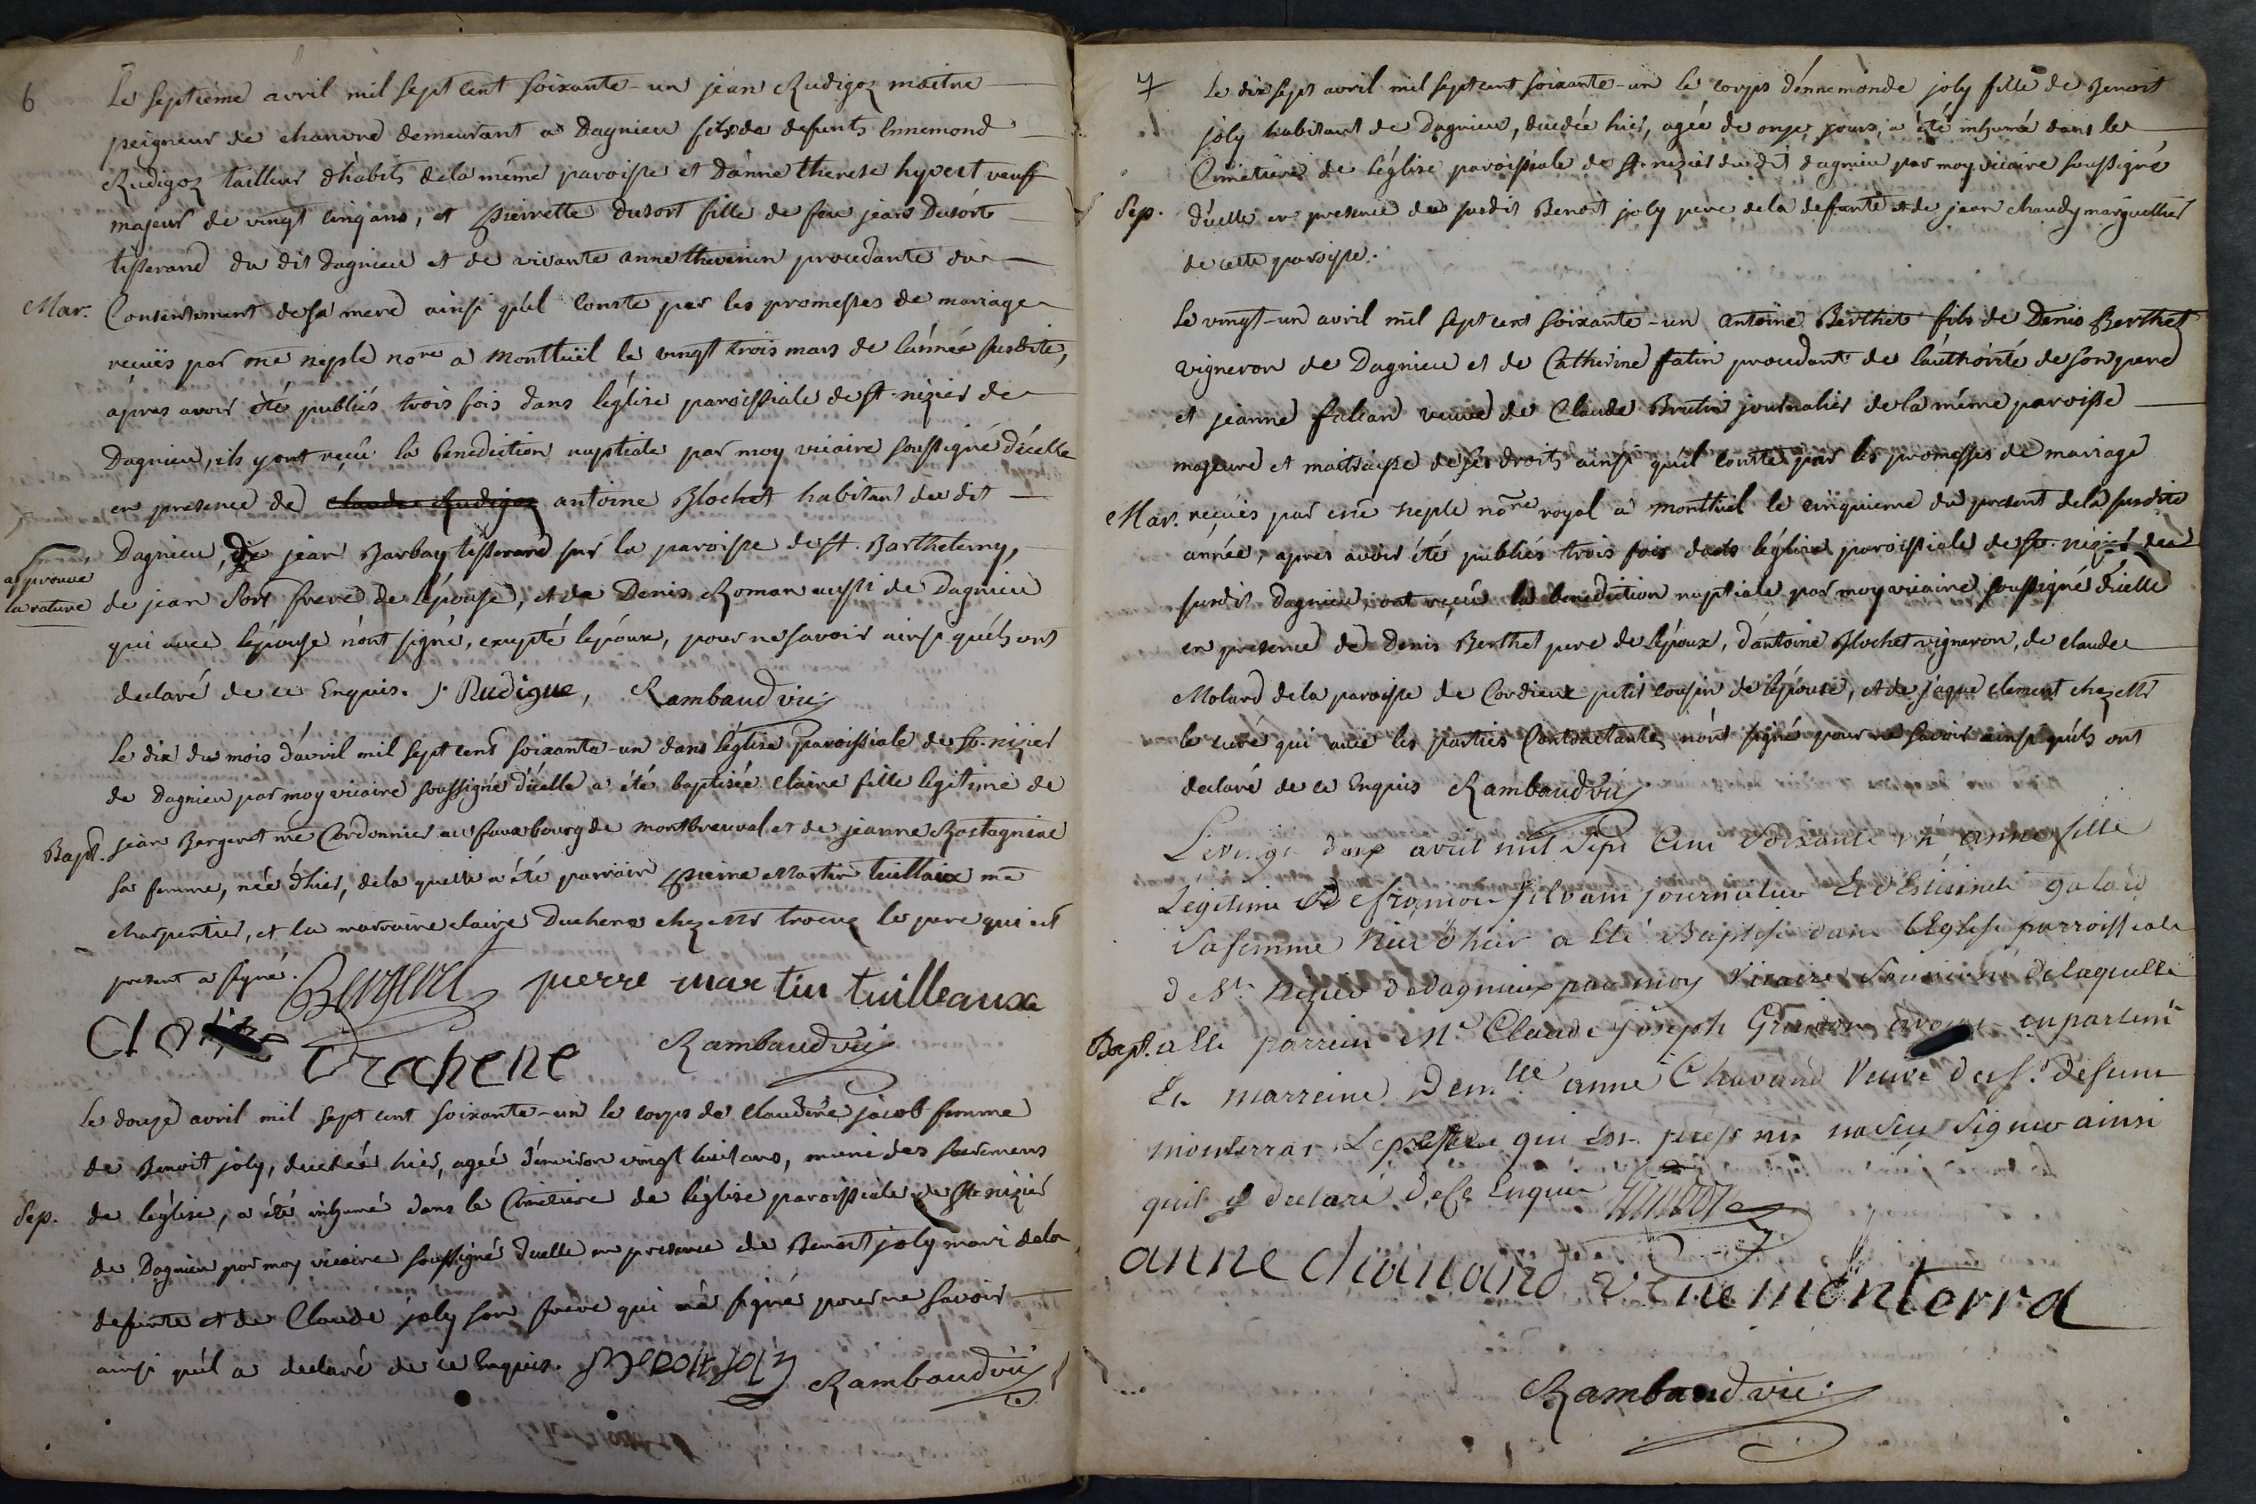 6
Le septieme avril mil sept cent soixante-un jean Rudigoz maitre
peigneur de chanvre demeurant a Dagnieu fils de defunts Ennemond
Rudigoz tailleur d'habits de la même paroisse et d'anne therese hyvert veuf
majeur de vingt cinq ans, et Pierrette dusort fille de feu jean Dusort
tisserand du dit Dagnieu et de vivante anne thevenin procedante du
Mar. Consentement de sa mere ainsi qu'il conste par les promesses de mariage
reçuës par me neple nore a Montluël le vingt trois mars de l'année susdite,
apres avoir été publiés trois fois dans l'église paroissiale de st. nizier de
Dagnieu, ils y ont reçu la benediction nuptiale par moy vicaire soussigné d'icelle
en presence de claude Rudigoz antoine Blochet habitant du dit
Dagnieu, de jean Barbay tisserand sur la paroisse de st. Barthelemy,
aprouve
la rature
de jean sort frere de l'épouse, et de Denis Roman aussi de Dagnieu
qui avec l'épouse n'ont signé, excepté l'époux, pour ne savoir ainsi qu'ils ont
declaré de ce Enquis. J. Rudigue, Rambaud vic
Le dix du mois d'avril mil sept cent soixante-un dans l'église paroissiale de St. nizier
de Dagnieu par moy vicaire soussigné d'icelle a été baptisée claire fille legitime de
Bapt. jean Bergeret me Cordonnier au fauxbourg de montbreuval et de jeanne Rostagnine
sa femme, née d'hier, de la quelle a été parrain pierre Martin tuillaux me
charpentier, et la marraine claire Duchene chez Mr le pere qui est
present a signé. Bergeret pierre martin tuilleaux
Claire
Drahene Rambaud vic
Le douze avril mil sept cent soixante-un le corps de claudine jacob femme
de Benoit joly, decedée hier, agée d'environ vingt huit ans, munie des sacremens
Sep. de l'église, a été inhumé dans le Cimetiere de l'église paroissiale de St. nizier
de Dagnieu par moy vicaire soussigné d'icelle en presence de Benoit joly mari de la
defunte et de Claude joly son frere qui n'a signé pour ne savoir
ainsi qu'il a declaré de ce Enquis. Benoit joly Rambaud vic
7
Le dix sept avril mil sept cent soixante-un le corps d'ennemonde joly fille de Benoit
joly habitant de Dagnieu, decedée hier, agée de onze jours, a été inhumée dans le
Cimetiere de l'église paroissiale de st. nizier du dit dagnieu par moy vicaire soussigné
Sep. d'icelle en presence du susdit Benoit joly pere de la defunte et de jean chaudy marguellier
de cette paroisse.
Le vingt-un avril mil sept cent soixante-un antoine Berthet fils de Denis Berthet
vigneron de Dagnieu et de Catherine fatin procedant de l'authorité de son pere
et jeanne veuve de Claude Brutin journalier de la même paroisse
majeure et maitraisse de ses droits ainsi qu'il conste par les promesses de mariage
Mar. reçuës par me neple nore royal a montluël le cinquieme du present de la susdite
année, apres avoir été publiés trois fois dans l'église paroissiale de st. nizier du
susdit Dagnieu, ont reçu la benediction nuptiale par moy vicaire soussigné d'icelle
en presence de Denis Berthet pere de l'époux, d'antoine Blochet vigneron, de claude
Molard de la paroisse de Cordieux petit cousin de l'épouse, et de jaque clement chez Mr
le curé qui avec les parties Contractantes n'ont signé pour ne savoir ainsi qu'ils ont
declaré de ce Enquis Rambaud vic
Le vingt deux avril mil Sept Cent Soixante un anne fille
Légitime de françois silvain journalier Et d'Estiennete galard
Sa femme Née d'hier a Eté Baptisé dans l'Eglise parroissiale
de St. Nizier de dagnieux par moy Vicaire Soussigné de laquelle
Bapt. a Eté parrein Mr. Claude joseph avocat en parlemt
Et marreine Demlle anne Chavand Veuve de sr. defunt
monterrat Le pere qui Est present na seu Signer ainsi
quil a declaré de Ce Enquis
anne chavand veue monterra
Rambaud vic.